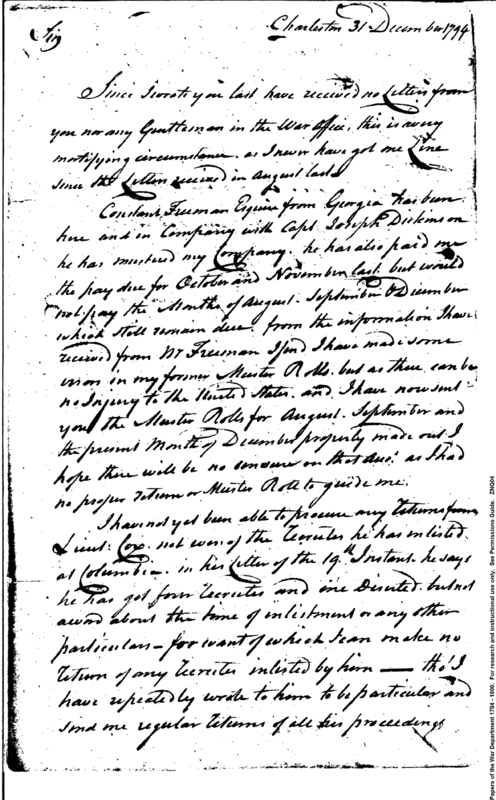 Charleston 31 December 1794
Sir
Since I wrote you last have received no Letters from
you nor any Gentleman in the War Office, this is a very
mortifying circumstance. as I never have got one Line
since the Letter received in August last
Constant Freeman Esquire from Georgia has been
here and in Company with Capt. Joseph Dickinson
he has mustered my Company. he has also paid me
the pay due for October and November last. but would
not pay the Months of August. September & December
which still remain due. from the information I have
received from Mr Freeman I find I have made some
errors in my former Muster Rolls. but as there can be
no Injury to the United States. and I have now sent
you the Muster Rolls for August. September and
the present Month of December properly made out. I
hope there will be no censure on that Acct. as I had
no proper return or Muster Roll to guide me.
I have not yet been able to procure any Returns from
Lieut: Cox. not even of the Recruits he has enlisted
at Columbia. in his Letter of the 19th Instant. he says
he has got four Recruits and one Diserted. but not
a word about the time of inlistment or any other
particulars - for want of which I can make no
Return of any Recruits inlisted by him — tho' I
have repeatedly wrote to him to be particular and
send me regular Returns of all his proceedings
Papers of the War Department 1784 - 1800. For research and instructional use only. See Permissions Guide. ZNQ04